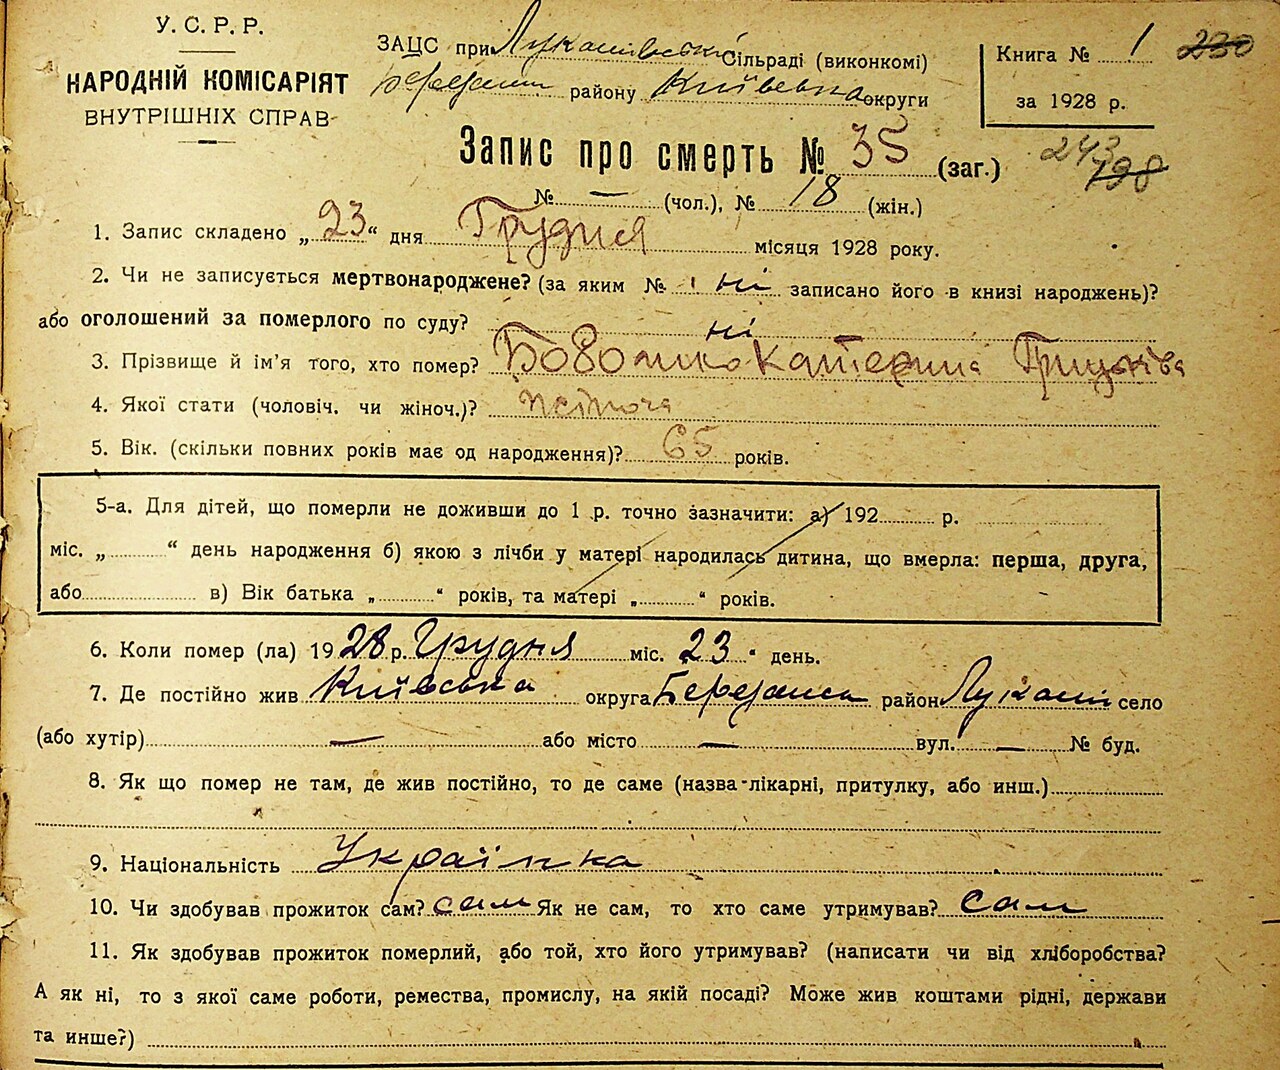 У. С. Р. Р.
НАРОДНІЙ КОМІСАРІЯТ
ВНУТРІШНІХ СПРАВ
ЗАЦС при Лукашівській Сільраді (виконкомі)
Березанськ району Київська округи
Книга № 1 230
за 1928 р.
Запис про смерть № 35 (заг.)
243 198
№ — (чол.), № 18 (жін.)
1. Запис складено „ 23 “ дня Грудня місяця 1928 року.
2. Чи не записується мертвонароджене? (за яким № ні записано його в книзі народжень)?
або оголошений за померлого по суду? ні
3. Прізвище й ім’я того, хто помер? Катерина Грицьківа
4. Якої стати (чоловіч. чи жіноч.)? жіноча
5. Вік. (скільки повних років має од народження)? 65 років.
5-а. Для дітей, що померли не доживши до 1 р. точно зазначити: а) 192 р.
міс. „ “ день народження б) якою з лічби у матері народилась дитина, що вмерла: перша, друга,
або в) Вік батька „ “ років, та матері „ “ років.
6. Коли помер (ла) 19 28 р. Грудня міс. 23 день.
7. Де постійно жив Київська округа Березанськ район Лукаші село
(або хутір) — або місто — вул. — № буд.
8. Як що помер не там, де жив постійно, то де саме (назва-лікарні, притулку, або инш.)
9. Національність Українка
10. Чи здобував прожиток сам? сам Як не сам, то хто саме утримував? сам
11. Як здобував прожиток померлий, або той, хто його утримував? (написати чи від хліборобства?
А як ні, то з якої саме роботи, ремества, промислу, на якій посаді? Може жив коштами рідні, держави
та инше?)